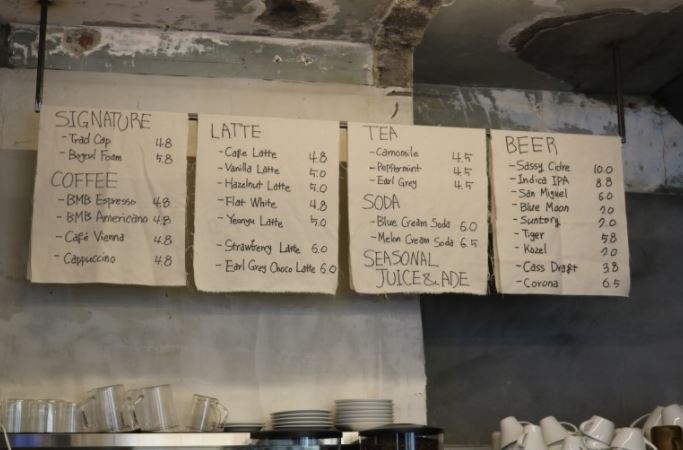 SIGNATURE
- Trad Cap 4.8
- Bogul Foam 5.8
COFFEE
- BMB Espresso 4.8
- BMB Americano 4.8
- Café Vienna 4.8
- Cappuccino 4.8
LATTE
- Cafe Latte 4.8
- Vanilla Latte 5.0
- Hazelnut Latte 5.0
- Flat White 4.8
- Yeonyu Latte 5.0
- Strawberry Latte 6.0
- Earl Grey Choco Latte 6.0
TEA
- Camomile 4.5
- Peppermint 4.5
- Earl Grey 4.5
SODA
- Blue Cream Soda 6.0
- Melon Cream Soda 6.5
SEASONAL
JUICE & ADE
BEER
- Sassy Cidre 10.0
- Indica IPA 8.8
- San Miguel 6.0
- Blue Moon 7.0
- Suntory 7.0
- Tiger 5.8
- Kozel 7.0
- Cass Draft 3.8
- Corona 6.5